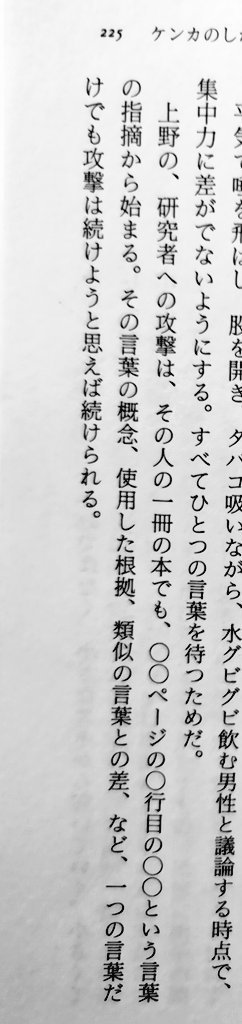 225 ケンカのし
平気で唾を飛ばし、股を開き、タバコ吸いながら、水グビグビ飲む男性と議論する時点で、
集中力に差がでないようにする。すべてひとつの言葉を待つためだ。
上野の、研究者への攻撃は、その人の一冊の本でも、〇〇ページの〇行目の〇〇という言葉
の指摘から始まる。その言葉の概念、使用した根拠、類似の言葉との差、など、一つの言葉だ
けでも攻撃は続けようと思えば続けられる。